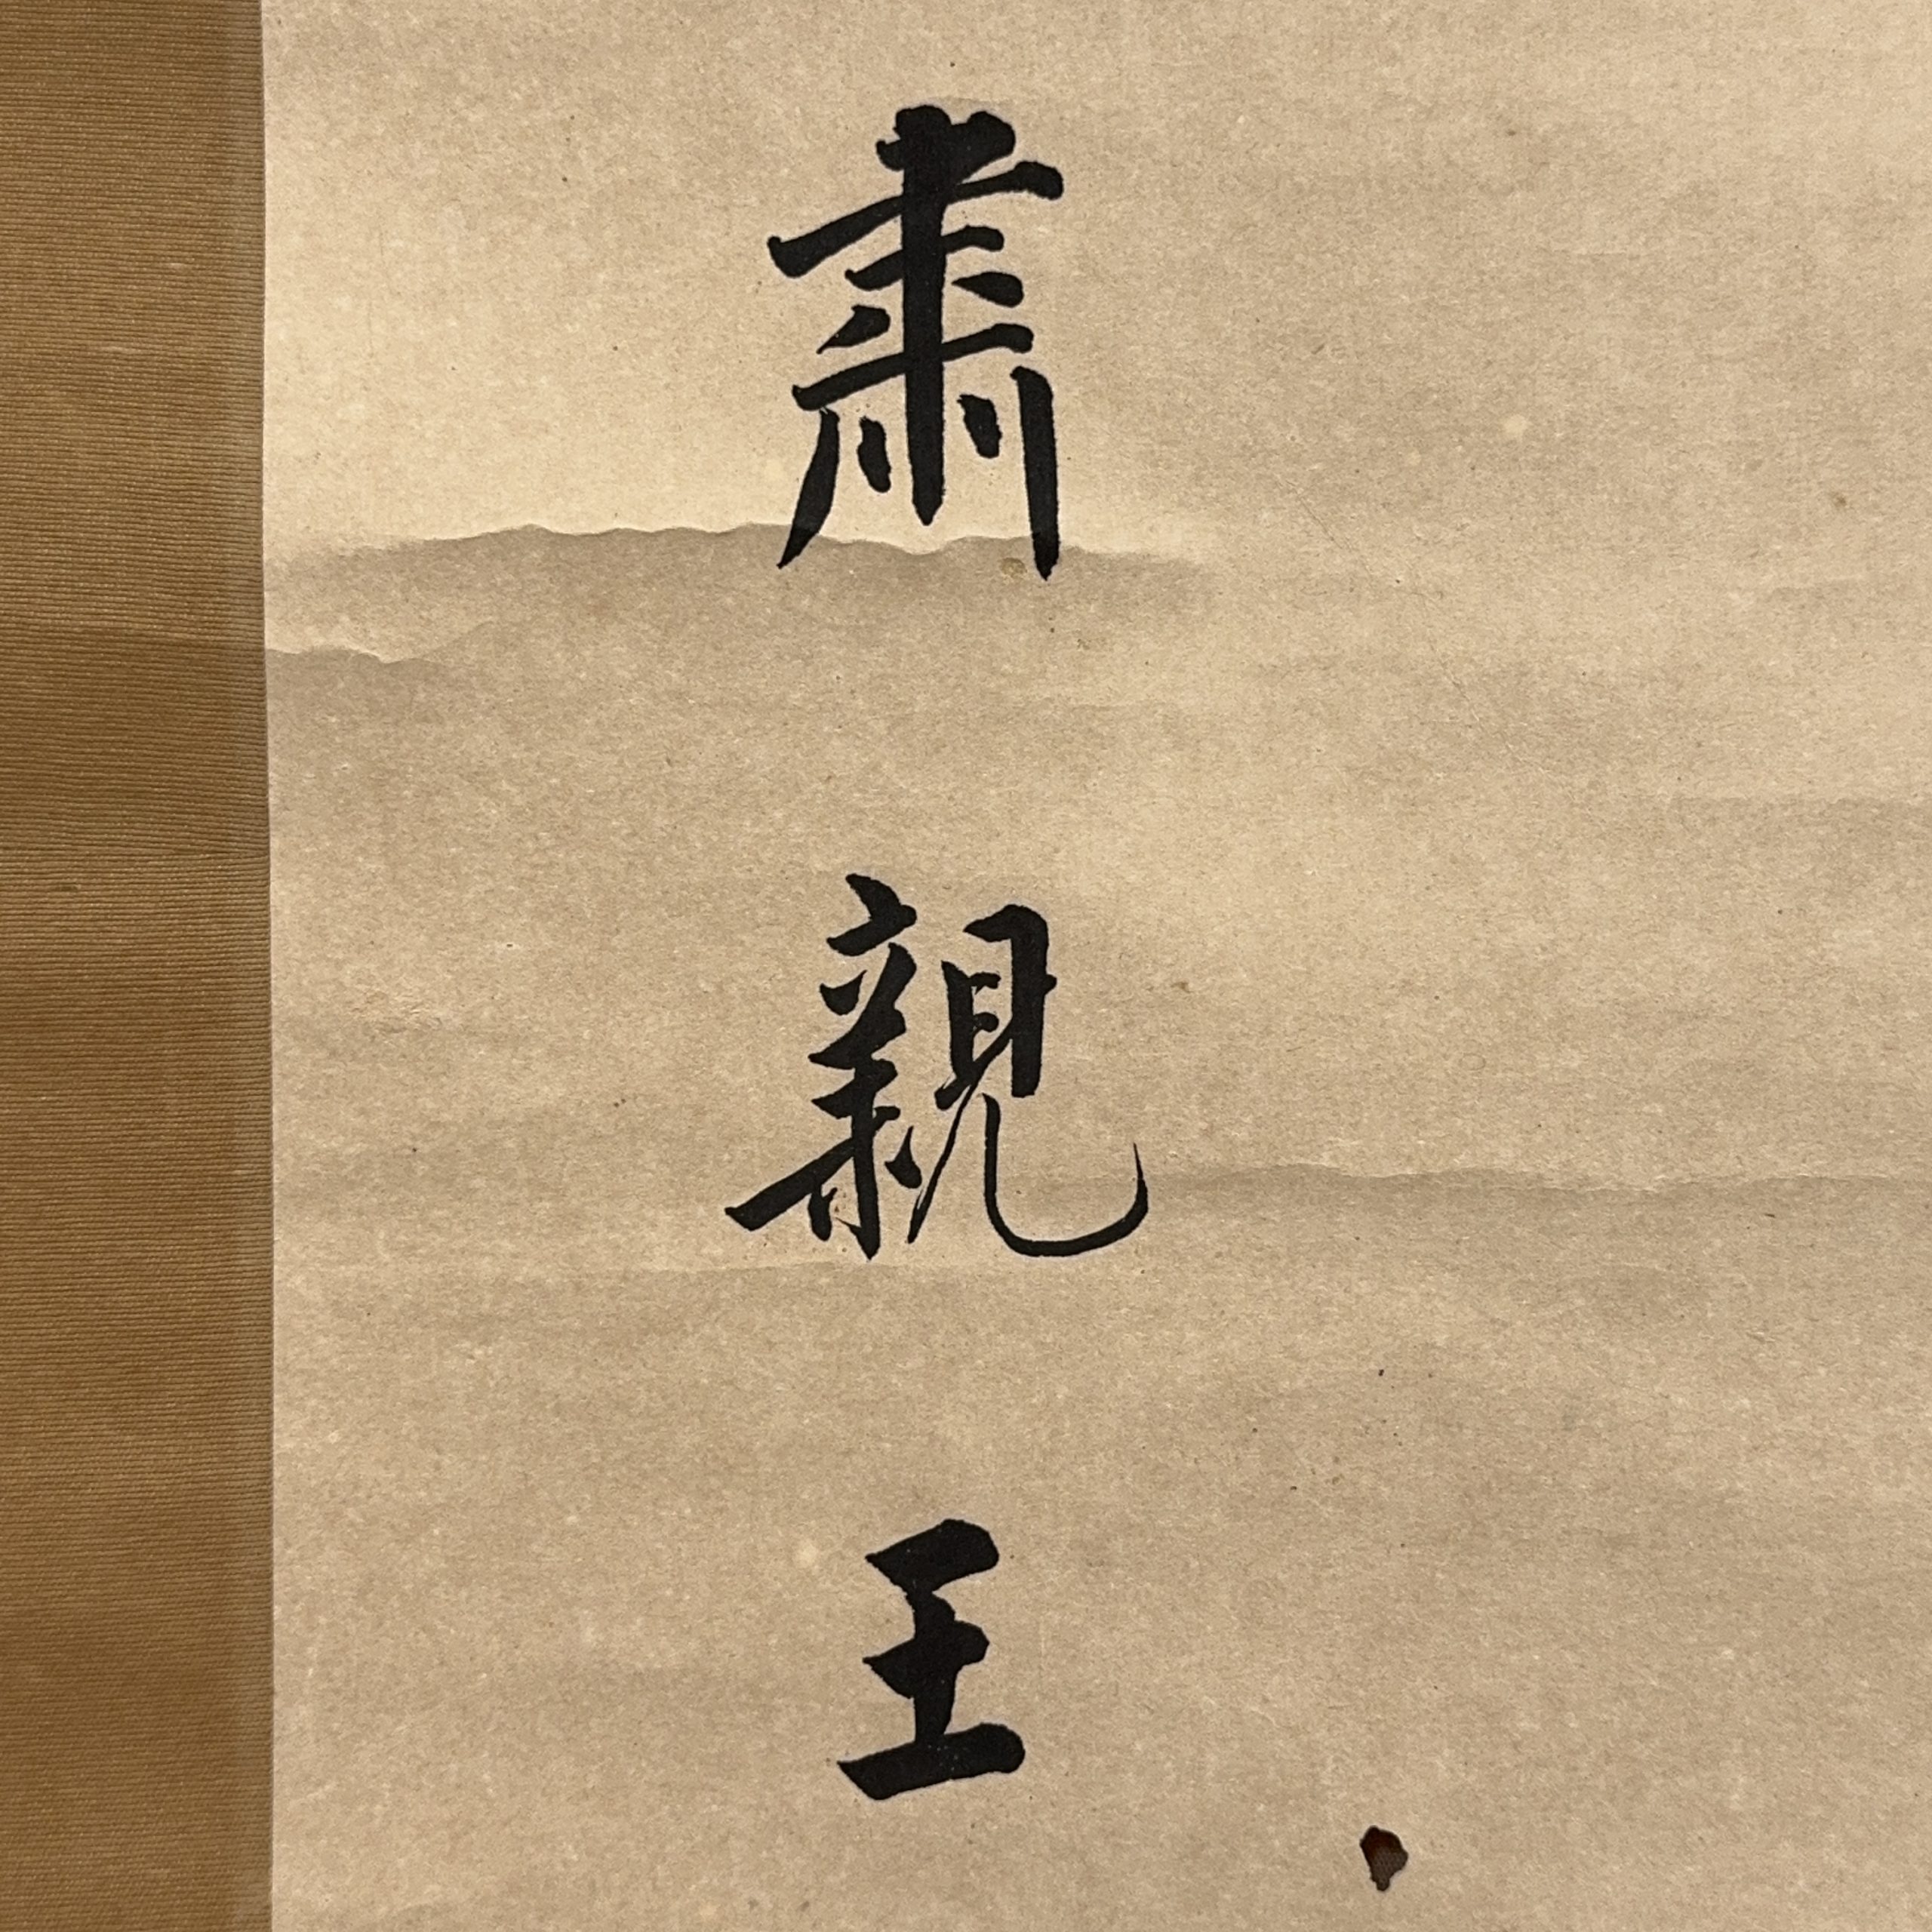 肅親王